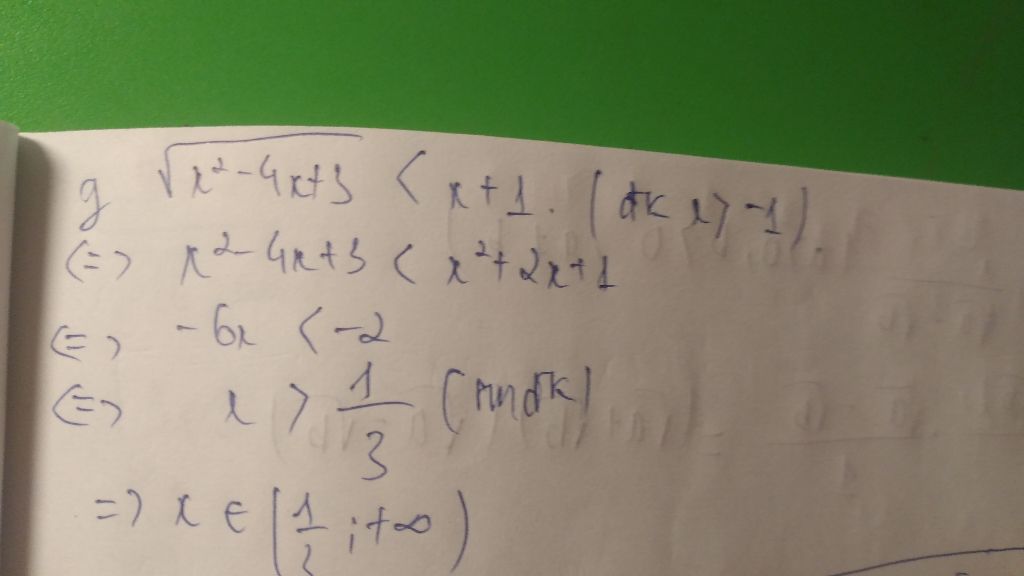 g √(x²-4x+3) < x+1. (đk x > -1).
<=> x²-4x+3 < x²+2x+1
<=> -6x < -2
<=> x > 1/3 (tmđk)
=> x ∈ (1/3 ; +∞)